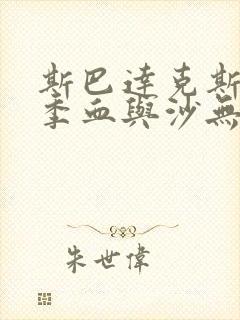 斯巴達克斯
季血與沙無
朱世偉